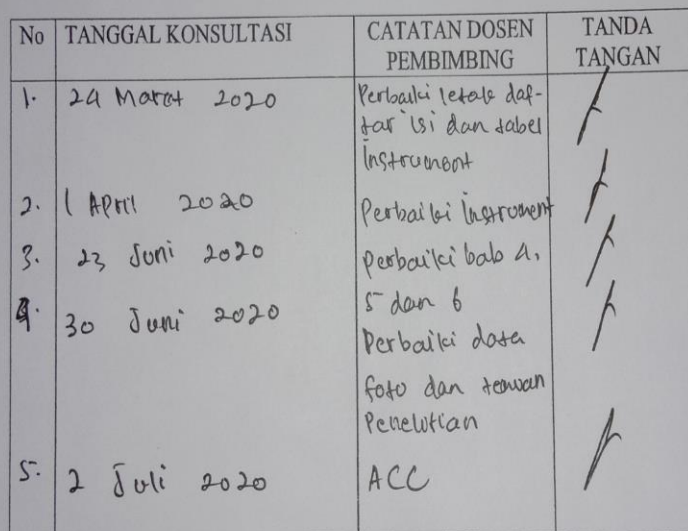 No TANGGAL KONSULTASI CATATAN DOSEN PEMBIMBING TANDA TANGAN
1. 24 Maret 2020 Perbaiki letak daf-
tar isi dan tabel
Instrument
2. 1 April 2020 Perbaiki Instrument
3. 23 Juni 2020 Perbaiki bab 4,
5 dan 6
4. 30 Juni 2020 Perbaiki data
foto dan temuan
Penelitian
5. 2 Juli 2020 ACC